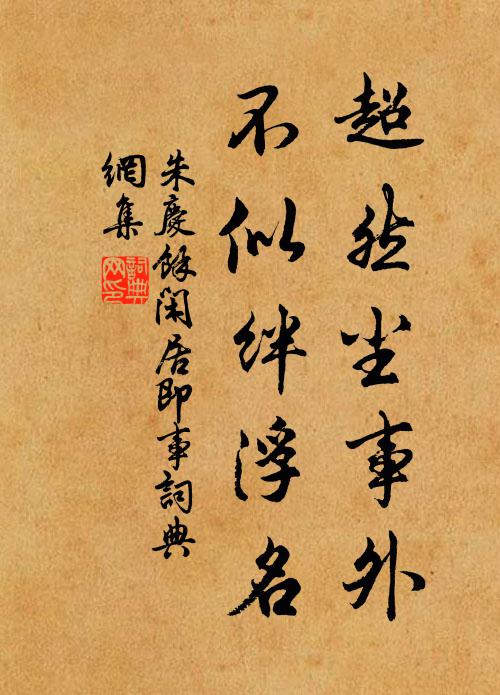 超然尘事外
不似绊浮名
朱慶餘閑居即事詞典
網集
詞典
网印